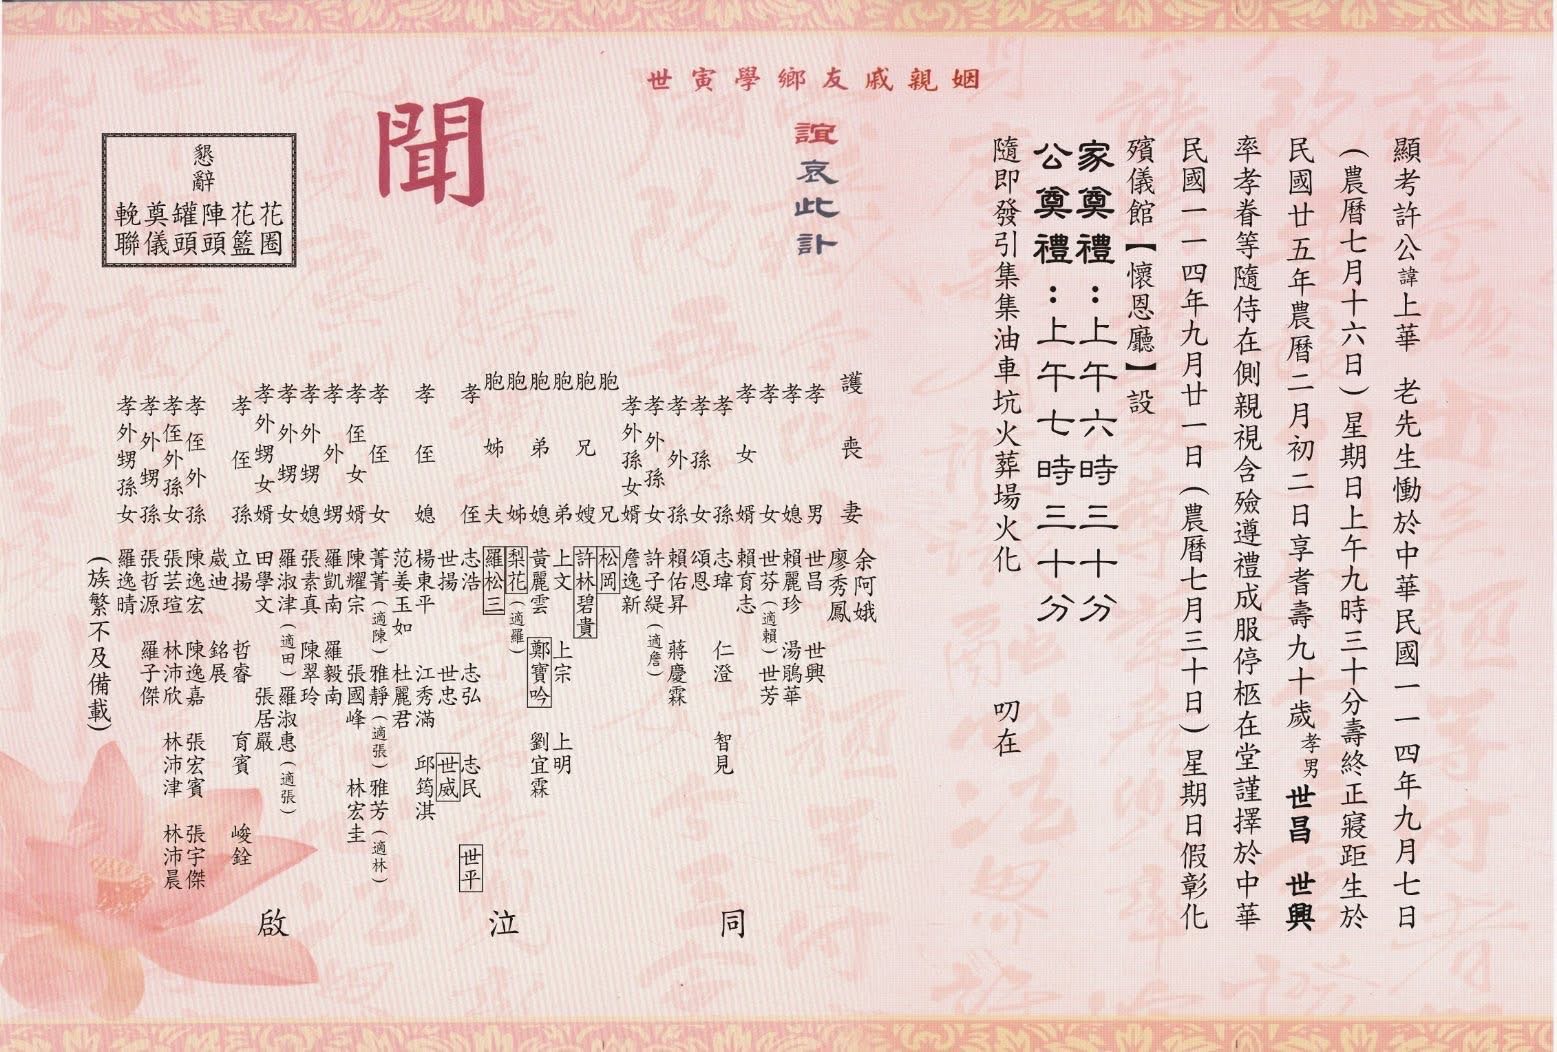 顯考許公諱上華 老先生慟於中華民國一一四年九月七日
(農曆七月十六日)星期日上午九時三十分壽終正寢距生於
民國廿五年農曆二月初二日享耆壽九十歲孝男世昌 世興
率孝眷等隨侍在側親視含殮遵禮成服停柩在堂謹擇於中華
民國一一四年九月廿一日(農曆七月三十日)星期日假彰化
殯儀館【懷恩廳】設
家奠禮：上午六時三十分
公奠禮：上午七時三十分
隨即發引集集油車坑火葬場火化 叨在
姻親戚友鄉學寅世
誼哀此訃
聞
護喪妻 余阿娥
廖秀鳳
孝男 世昌 世興
孝媳 賴麗珍 湯鵑華
孝女 世芬(適賴) 世芳
孝女婿 賴育志
孝孫 志瑋 仁澄 智見
孝孫女 頌恩
孝外孫 賴佑昇 蔣慶霖
孝外孫女 許子緹(適詹)
孝外孫女婿 詹逸新
胞兄 松岡
胞兄嫂 許林碧貴
胞弟 上文 上宗 上明
胞弟媳 黃麗雲 鄭寶吟 劉宜霖
胞姊 梨花(適羅)
胞姊夫 羅松三
孝侄 志浩 志弘 志民 世平
世揚 世忠 世威
孝侄媳 楊東平 江秀滿 邱筠淇
范姜玉如 杜麗君
孝侄女 菁菁(適陳) 雅靜(適張) 雅芳(適林)
孝侄女婿 陳耀宗 張國峰 林宏圭
孝外甥 羅凱南 羅毅南
孝外甥媳 張素真 陳翠玲
孝外甥女 羅淑津(適田) 羅淑惠(適張)
孝外甥女婿 田學文 張居嚴
孝侄孫 立揚 哲睿 育賓 峻銓
崴迪 銘展
孝侄外孫 陳逸宏 陳逸嘉 張宏賓 張宇傑
孝侄外孫女 張芸瑄 林沛欣 林沛津 林沛晨
孝外甥孫 張哲源 羅子傑
孝外甥孫女 羅逸晴
(族繁不及備載)
同 泣 啟
懇辭
花圈
花籃
陣頭
罐頭
奠儀
輓聯